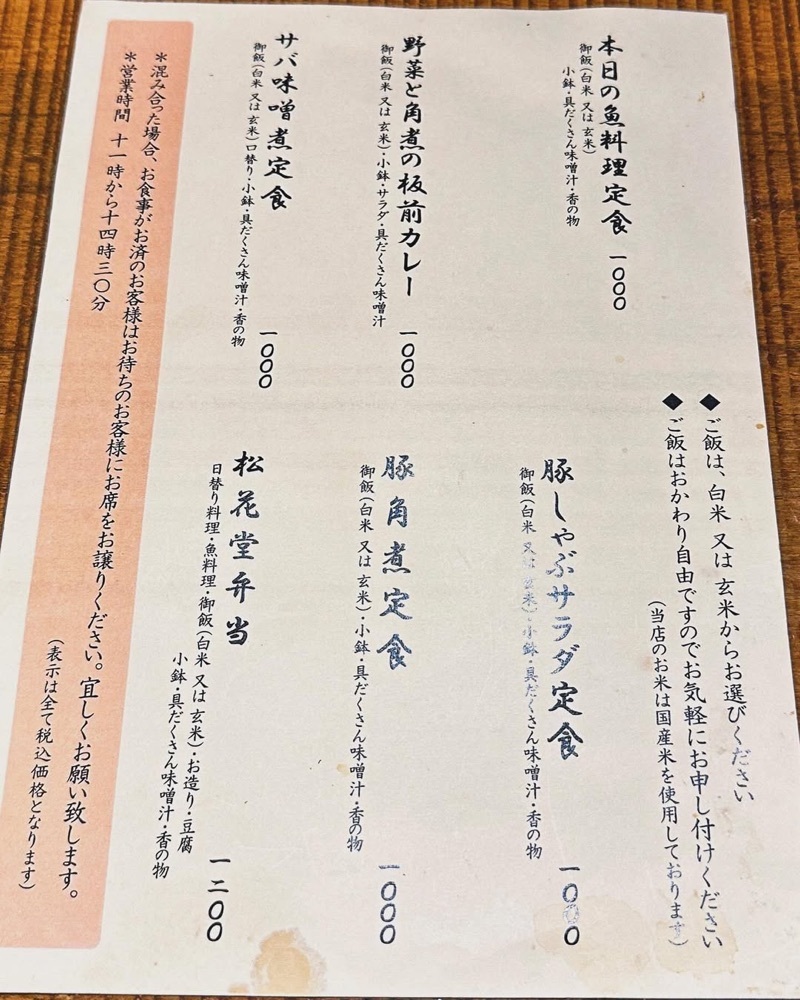 ◆ご飯は、白米 又は 玄米からお選びください
◆ご飯はおかわり自由ですのでお気軽にお申し付けください
（当店のお米は国産米を使用しております）
本日の魚料理定食 一〇〇〇
御飯（白米 又は 玄米）
小鉢・具だくさん味噌汁・香の物
野菜と角煮の板前カレー 一〇〇〇
御飯（白米 又は 玄米）・小鉢・サラダ・具だくさん味噌汁
サバ味噌煮定食 一〇〇〇
御飯（白米 又は 玄米）口替り・小鉢・具だくさん味噌汁・香の物
豚しゃぶサラダ定食 一〇〇〇
御飯（白米 又は 玄米）・小鉢・具だくさん味噌汁・香の物
豚角煮定食 一〇〇〇
御飯（白米 又は 玄米）・小鉢・具だくさん味噌汁・香の物
松花堂弁当 一二〇〇
日替り料理・魚料理・御飯（白米 又は 玄米）・お造り・豆腐
小鉢・具だくさん味噌汁・香の物
＊混み合った場合、お食事がお済のお客様はお待ちのお客様にお席をお譲りください。宜しくお願い致します。
＊営業時間 十一時から十四時三〇分
（表示は全て税込価格となります）